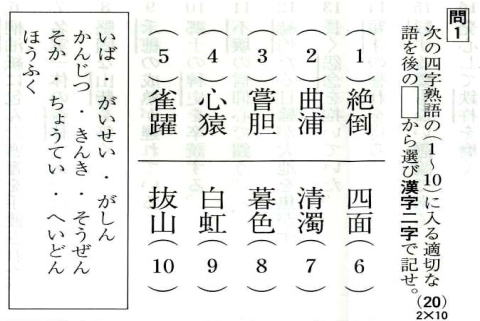 問1
次の四字熟語の(1〜10)に入る適切な
語を後の□から選び漢字二字で記せ。
(20)
2×10
(1)絶倒
(2)曲浦
(3)嘗胆
(4)心猿
(5)雀躍
四面(6)
清濁(7)
暮色(8)
白虹(9)
抜山(10)
いば・がいせい・がしん
かんじつ・きんき・そうぜん
そか・ちょうてい・へいどん
ほうふく